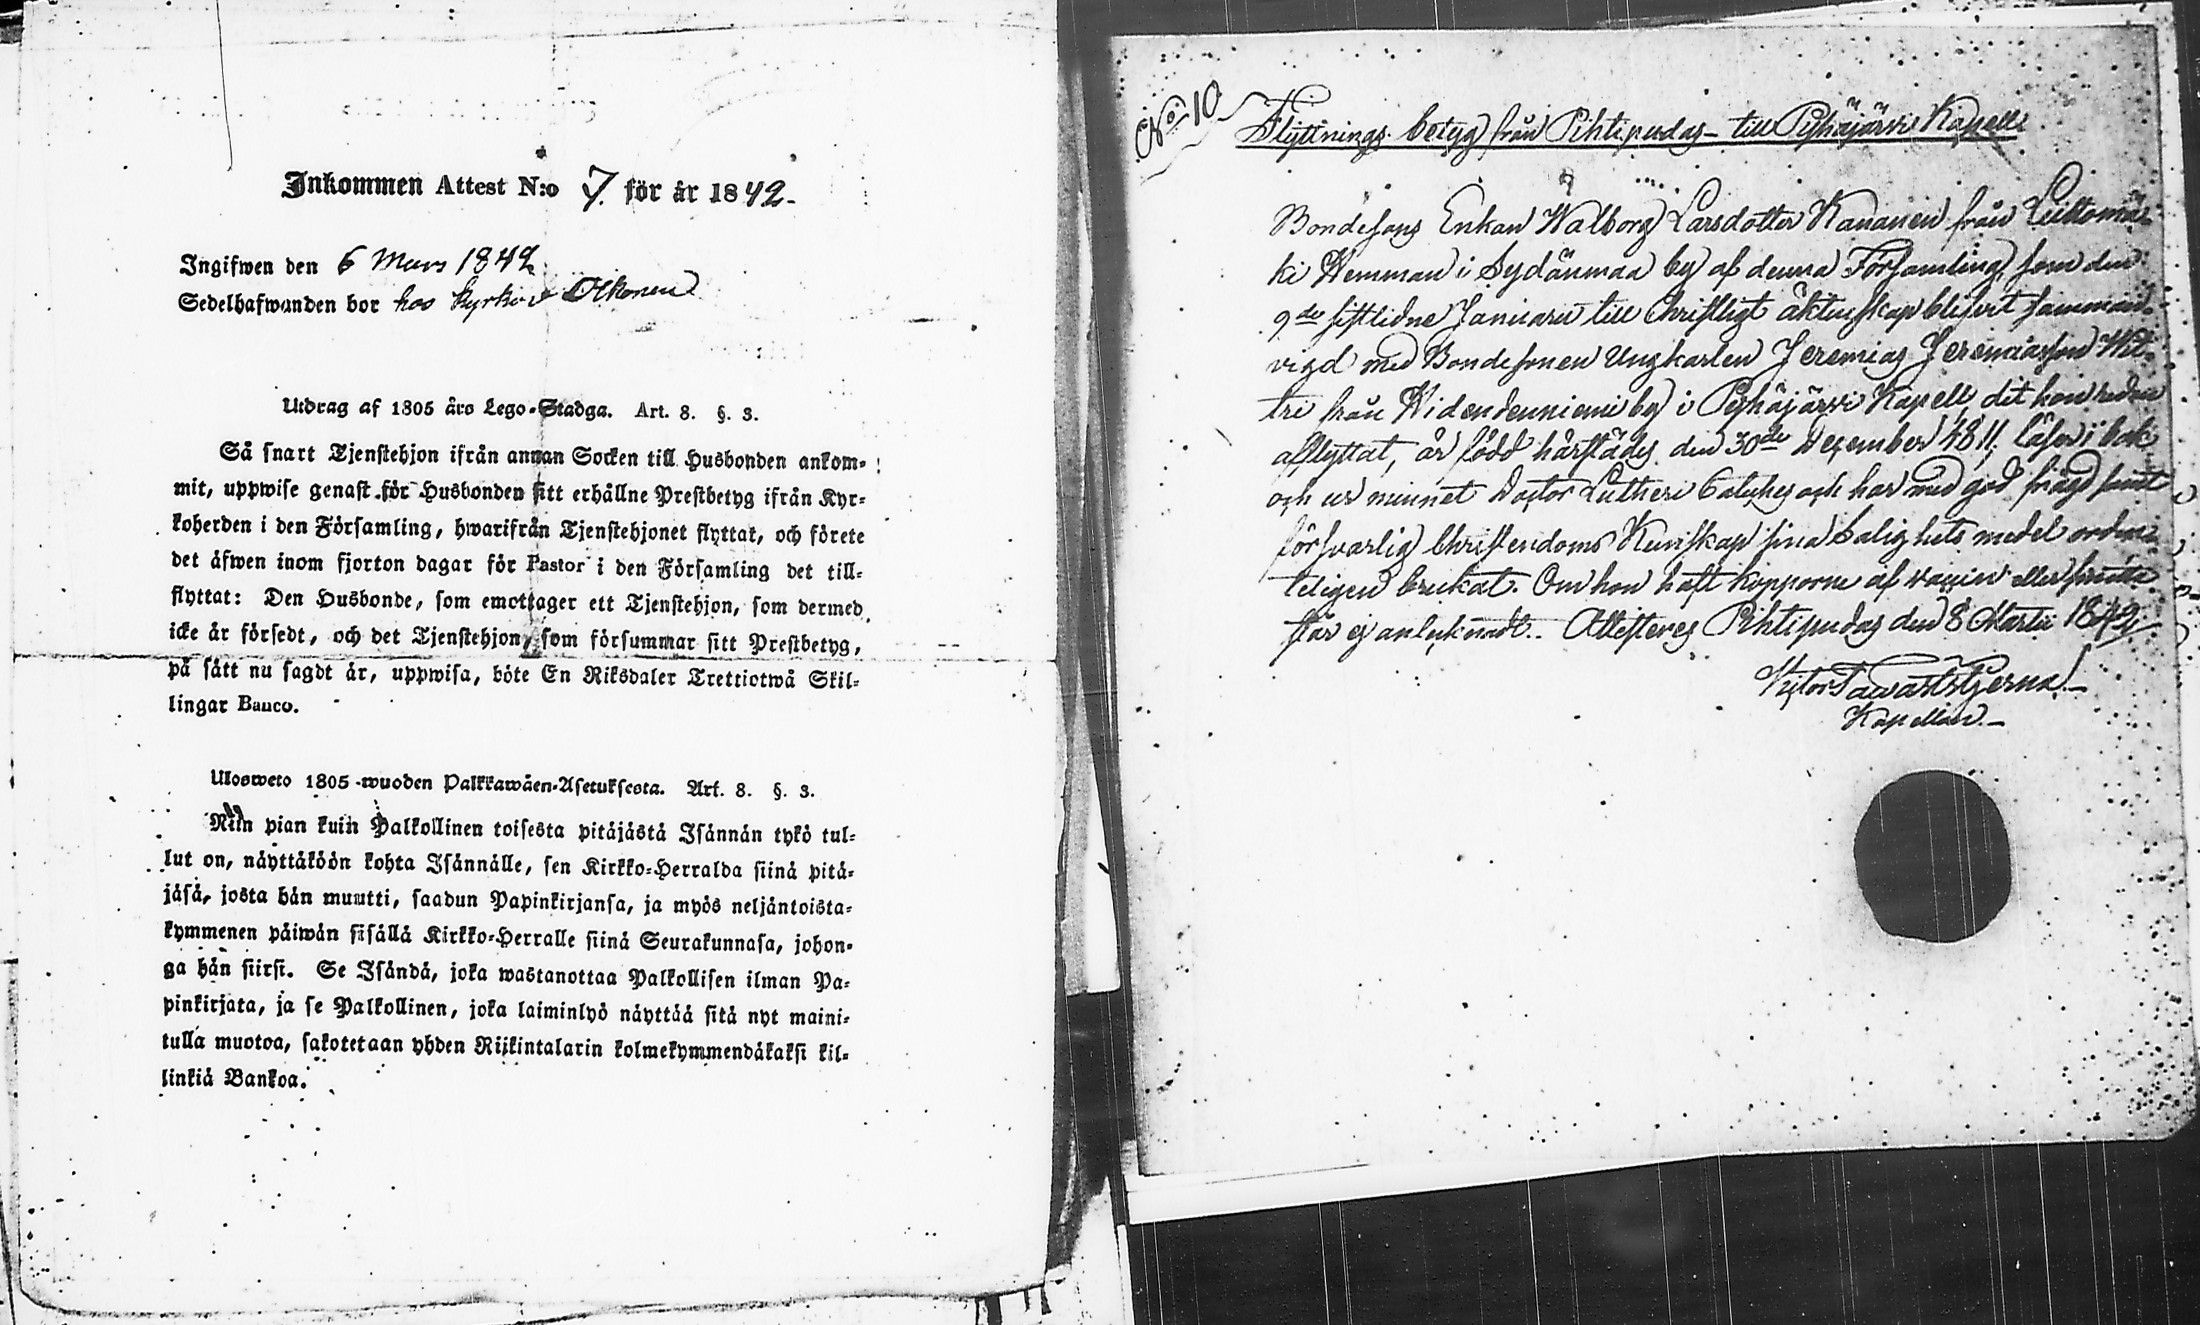 Inkommen Attest N:o 7. för år 1842.
Ingifwen den 6 Mars 1842
Sedelhafwanden bor hos kyrkov. Olkonen
Utdrag af 1805 års Lego-Stadga. Art. 8. §. 3.
Så snart Tjenstehjon ifrån annan Socken till Husbonden ankom-
mit, uppwise genast för Husbonden sitt erhållne Prestbetyg ifrån Kyr-
koherden i den Församling, hwarifrån Tjenstehjonet flyttat, och förete
det äfwen inom fjorton dagar för Pastor i den Församling det till-
flyttat: Den Husbonde, som emottager ett Tjenstehjon, som dermed
icke är försedt, och det Tjenstehjon, som försummar sitt Prestbetyg,
på sätt nu sagdt är, uppwisa, böte En Riksdaler Trettiotwå Skil-
lingar Banco.
Ulosweto 1805-wuoden Palkkawäen-Asetuksesta. Art. 8. §. 3.
Niin pian kuin Palkollinen toisesta pitäjästä Isännän tykö tul-
lut on, näyttäköön kohta Isännälle, sen Kirkko-Herralda siinä pitä-
jäsä, josta hän muutti, saadun Papinkirjansa, ja myös neljäntoista-
kymmenen päiwän sisällä Kirkko-Herralle siinä Seurakunnasa, johon-
ga hän siirsi. Se Isändä, joka wastanottaa Palkollisen ilman Pa-
pinkirjata, ja se Palkollinen, joka laiminlyö näyttää sitä nyt maini-
tulla muotoa, sakotetaan yhden Riikintalarin kolmekymmendäkaksi kil-
linkiä Bankoa.
No 10
Flyttnings betyg från Pihtipudas till Pyhäjärvi Kapell
Bondesons Enkan Walborg Larsdotter Kananen från Leistomä-
ki Hemman i Sydänmaa by af denna Församling, som den
9de sistlidne Januarii till Christligt äktenskap blifvit samman-
vigd med Bondesonen Ungkarlen Jeremias Jeremiasson Wit-
tri från Hidendenniemi by i Pyhäjärvi Kapell dit hon redan
aflyttat, är född härstädes den 30de December 1811, läser i bok
och ur minnet Doctor Lutheri Cateches och har med god frägd samt
försvarlig Christendoms Kunskap sina salighets medel ordent-
teligen brukat. Om hon haft kopporne af vaccin eller smitta
står ej anteknadt. Attesteres Pihtipudas den 8 Martii 1842
Victor Tawaststjerna
Kapellan.